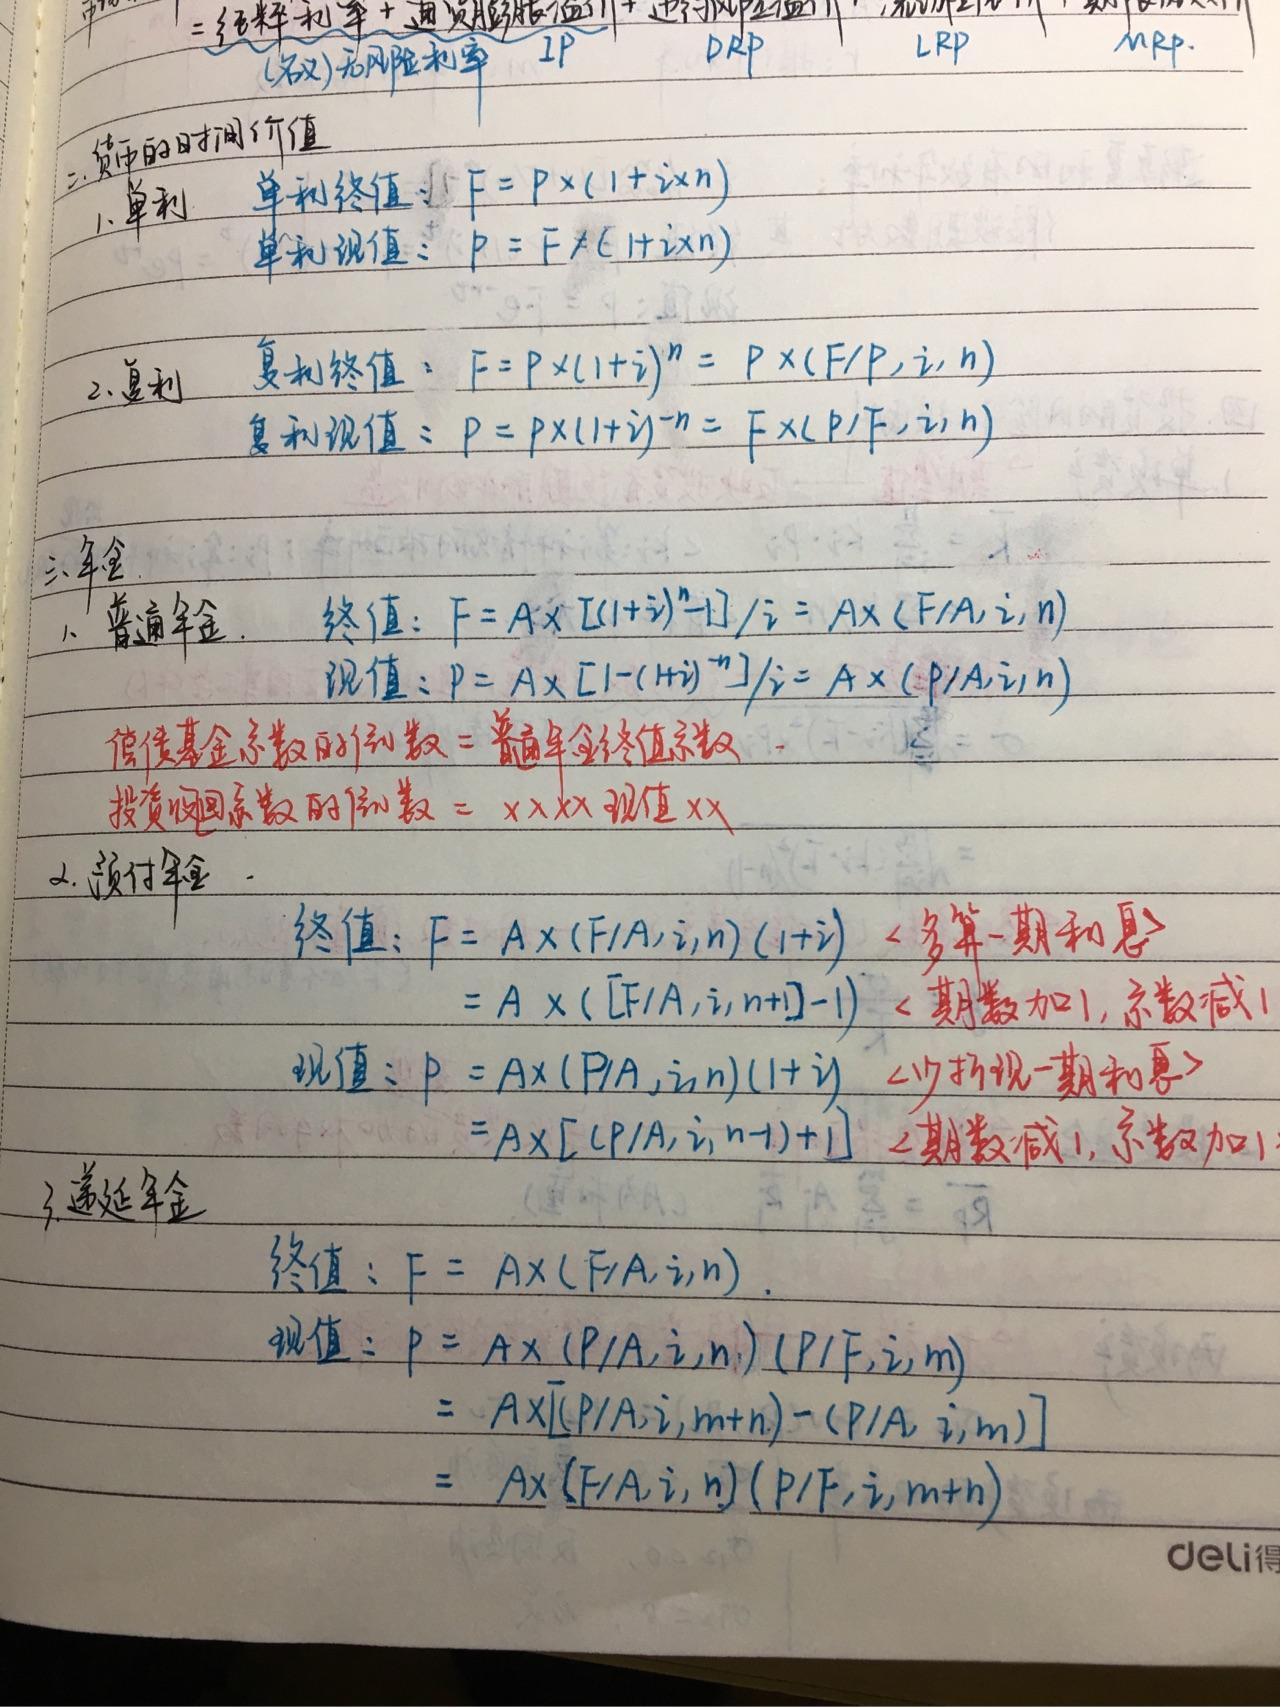 =纯粹利率+通货膨胀溢价+违约风险溢价+流动性溢价+期限风险溢价
(名义)无风险利率 IP DRP LRP MRP.
二、货币的时间价值
1、单利 单利终值：F=P×(1+i×n)
单利现值：P=F×(1+i×n)
2、复利 复利终值：F=P×(1+i)^n=P×(F/P,i,n)
复利现值：P=P×(1+i)^-n=F×(P/F,i,n)
三、年金
1、普通年金. 终值：F=A×[(1+i)^n-1]/i=A×(F/A,i,n)
现值：P=A×[1-(1+i)^-n]/i=A×(P/A,i,n)
偿债基金系数的倒数=普通年金终值系数
投资回收系数的倒数=××××现值××
2.预付年金
终值：F=A×(F/A,i,n)(1+i) <多算一期利息>
=A×([F/A,i,n+1]-1) <期数加1,系数减1
现值：P=A×(P/A,i,n)(1+i) <少折现一期利息>
=A×[(P/A,i,n-1)+1] <期数减1,系数加1>
3.递延年金
终值：F=A×(F/A,i,n).
现值：P=A×(P/A,i,n)(P/F,i,m)
=A×[(P/A,i,m+n)-(P/A,i,m)]
=A×(F/A,i,n)(P/F,i,m+n)
deli得